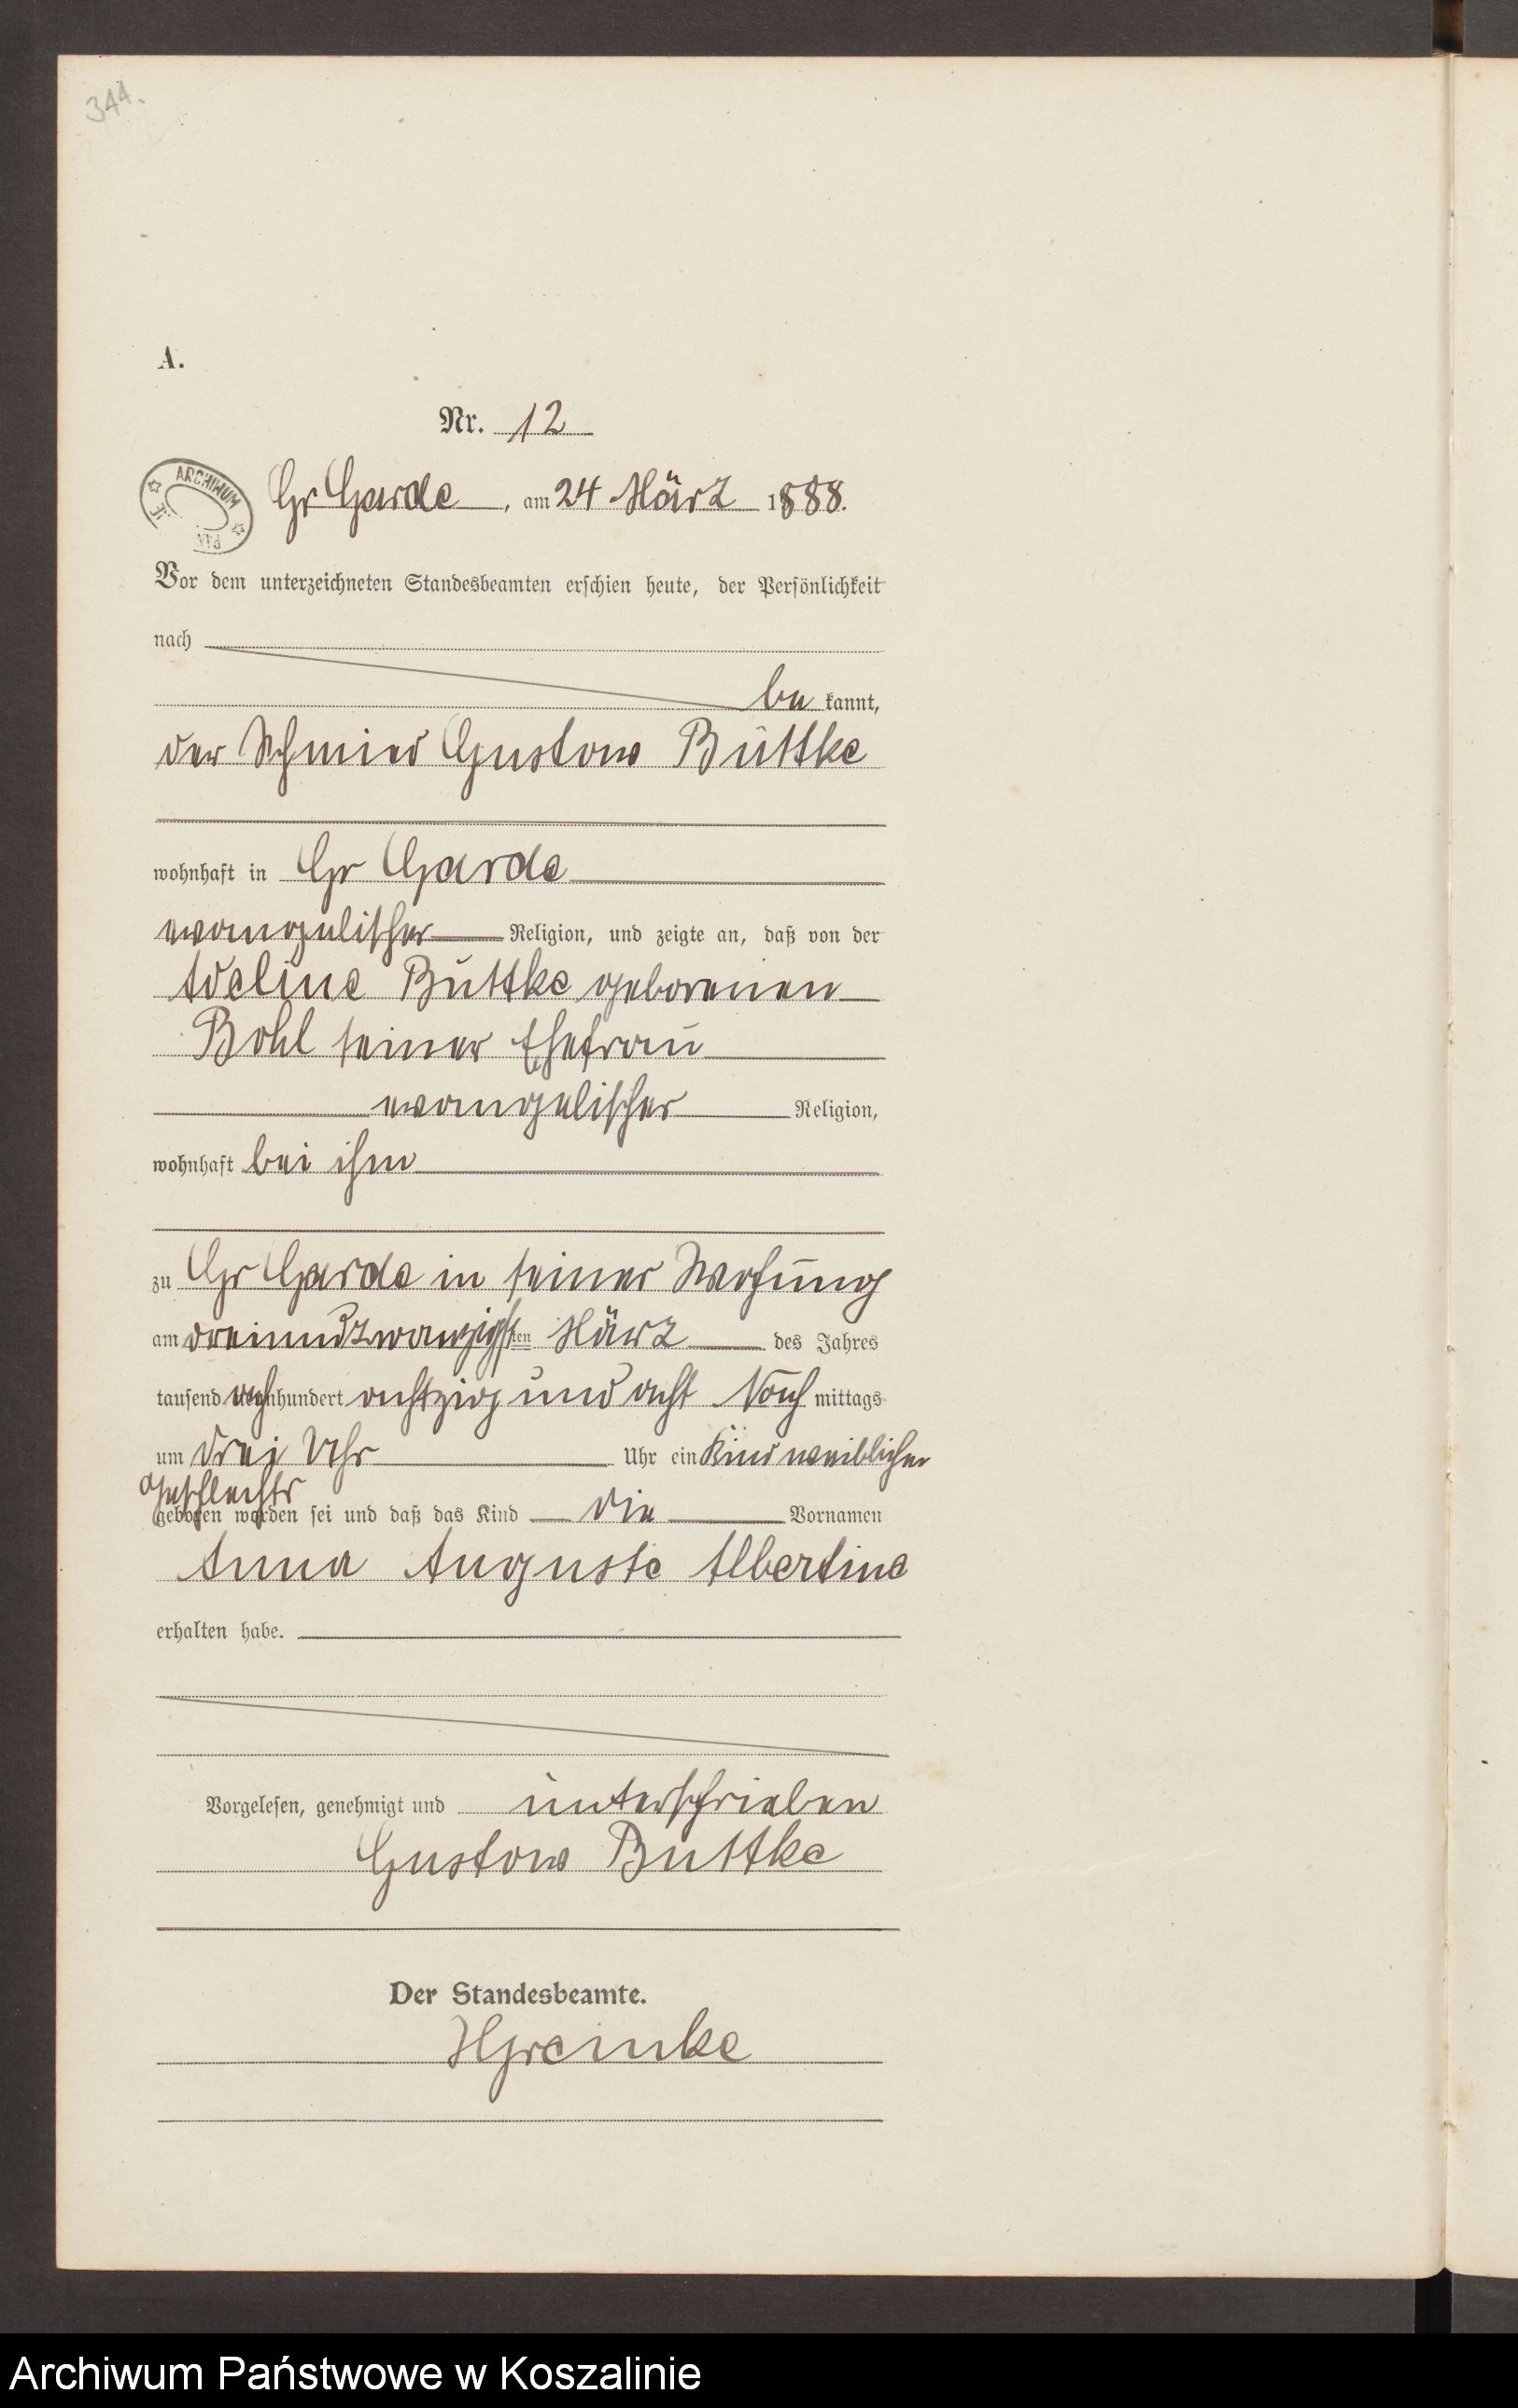 344.
A.
Nr. 12
ARCHIWUM
Gr Garde, am 24 März 1888.
Vor dem unterzeichneten Standesbeamten erschien heute, der Persönlichkeit
nach
be kannt,
der Schmied Gustav Büttke
wohnhaft in Gr Garde
evangelischer Religion, und zeigte an, daß von der
Adeline Büttke geborenen
Bohl seiner Ehefrau
evangelischer Religion,
wohnhaft bei ihm
zu Gr Garde in seiner Wohung
am dreiundzwanzigsten März des Jahres
tausend achthundert achtzig und acht Nach mittags
um drei Uhr Uhr ein Kind weiblichen
Geschlechts
geboren worden sei und daß das Kind die Vornamen
Anna Auguste Albertine
erhalten habe.
Vorgelesen, genehmigt und unterschrieben
Gustav Buttke
Der Standesbeamte.
Archiwum Państwowe w Koszalinie